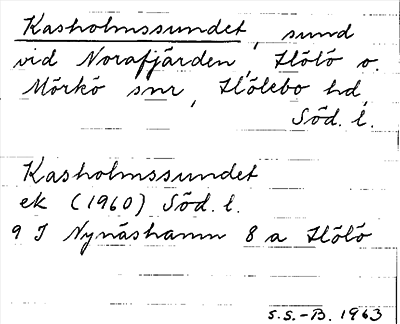 Kasholmssundet, sund
vid Norafjärden, Hölö o.
Mörkö snr, Hölebo hd,
Söd. l.
Kasholmssundet
ek (1960) Söd. l.
9 I Nynäshamn 8 a Hölö
S.S.-B. 1963